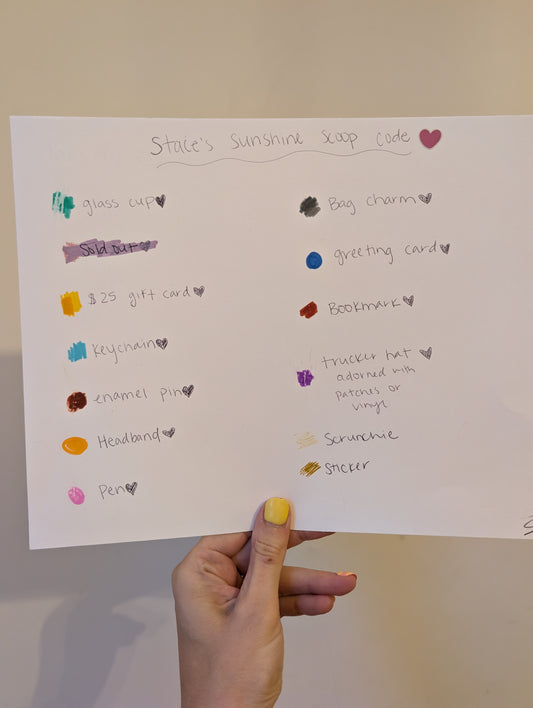 Stacie's Sunshine Scoop Code
glass cup
Sold out
$25 gift card
keychain
enamel pin
Headband
Pen
Bag charm
greeting card
Bookmark
trucker hat
adorned with
patches or
vinyl
Scrunchie
Sticker